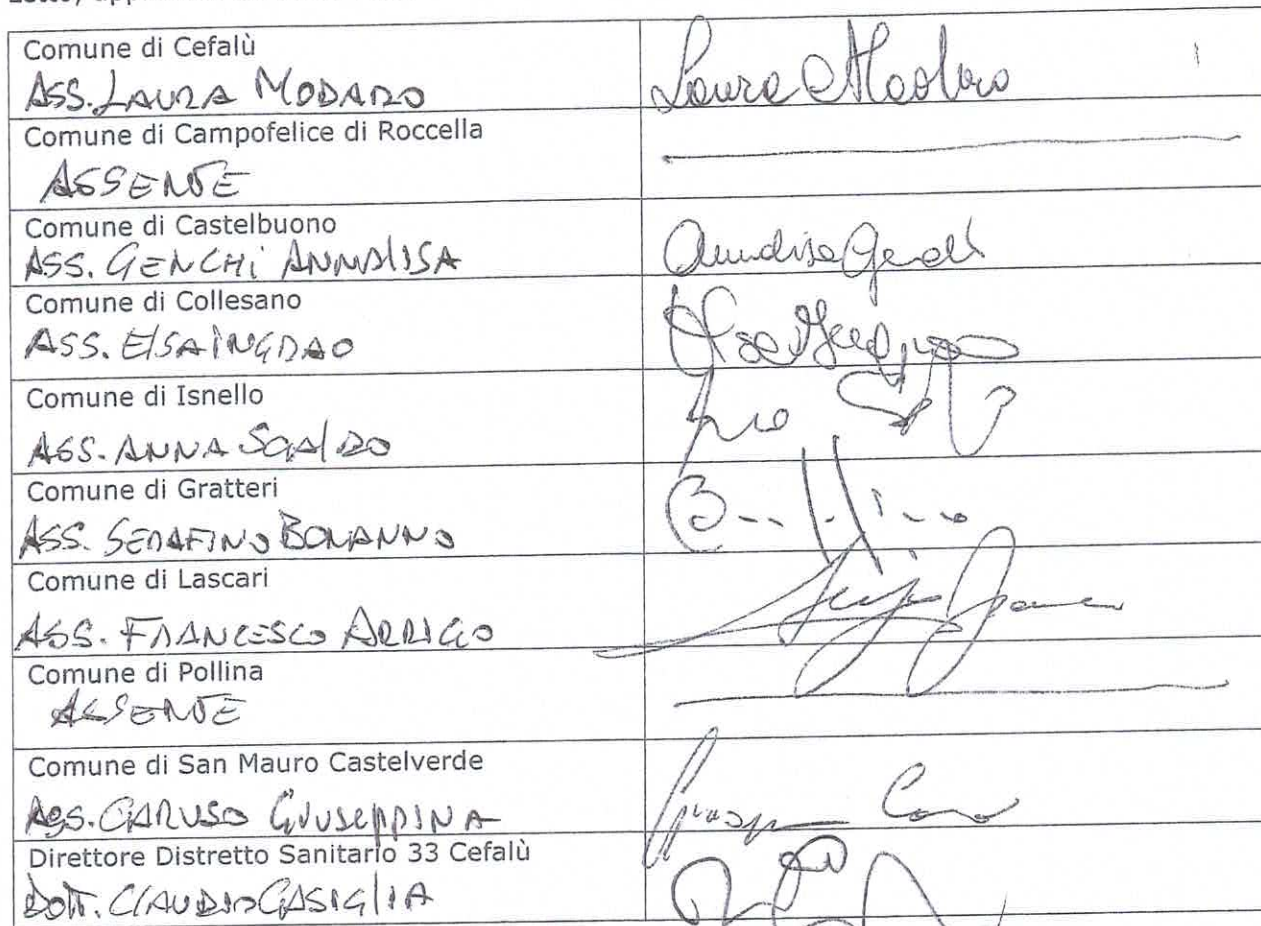 Comune di Cefalù
ASS. LAURA MODARO Laura Modaro
Comune di Campofelice di Roccella
ASSENTE
Comune di Castelbuono
ASS. GENCHI ANNALISA Annalisa Genchi
Comune di Collesano
ASS. ELSA INGRAO
Comune di Isnello
ASS. ANNA SCALDO
Comune di Gratteri
ASS. SERAFINO BONANNO
Comune di Lascari
ASS. FRANCESCO ARRIGO
Comune di Pollina
ASSENTE
Comune di San Mauro Castelverde
ASS. CARUSO GIUSEPPINA
Direttore Distretto Sanitario 33 Cefalù
DOTT. CLAUDIO CASIGLIA